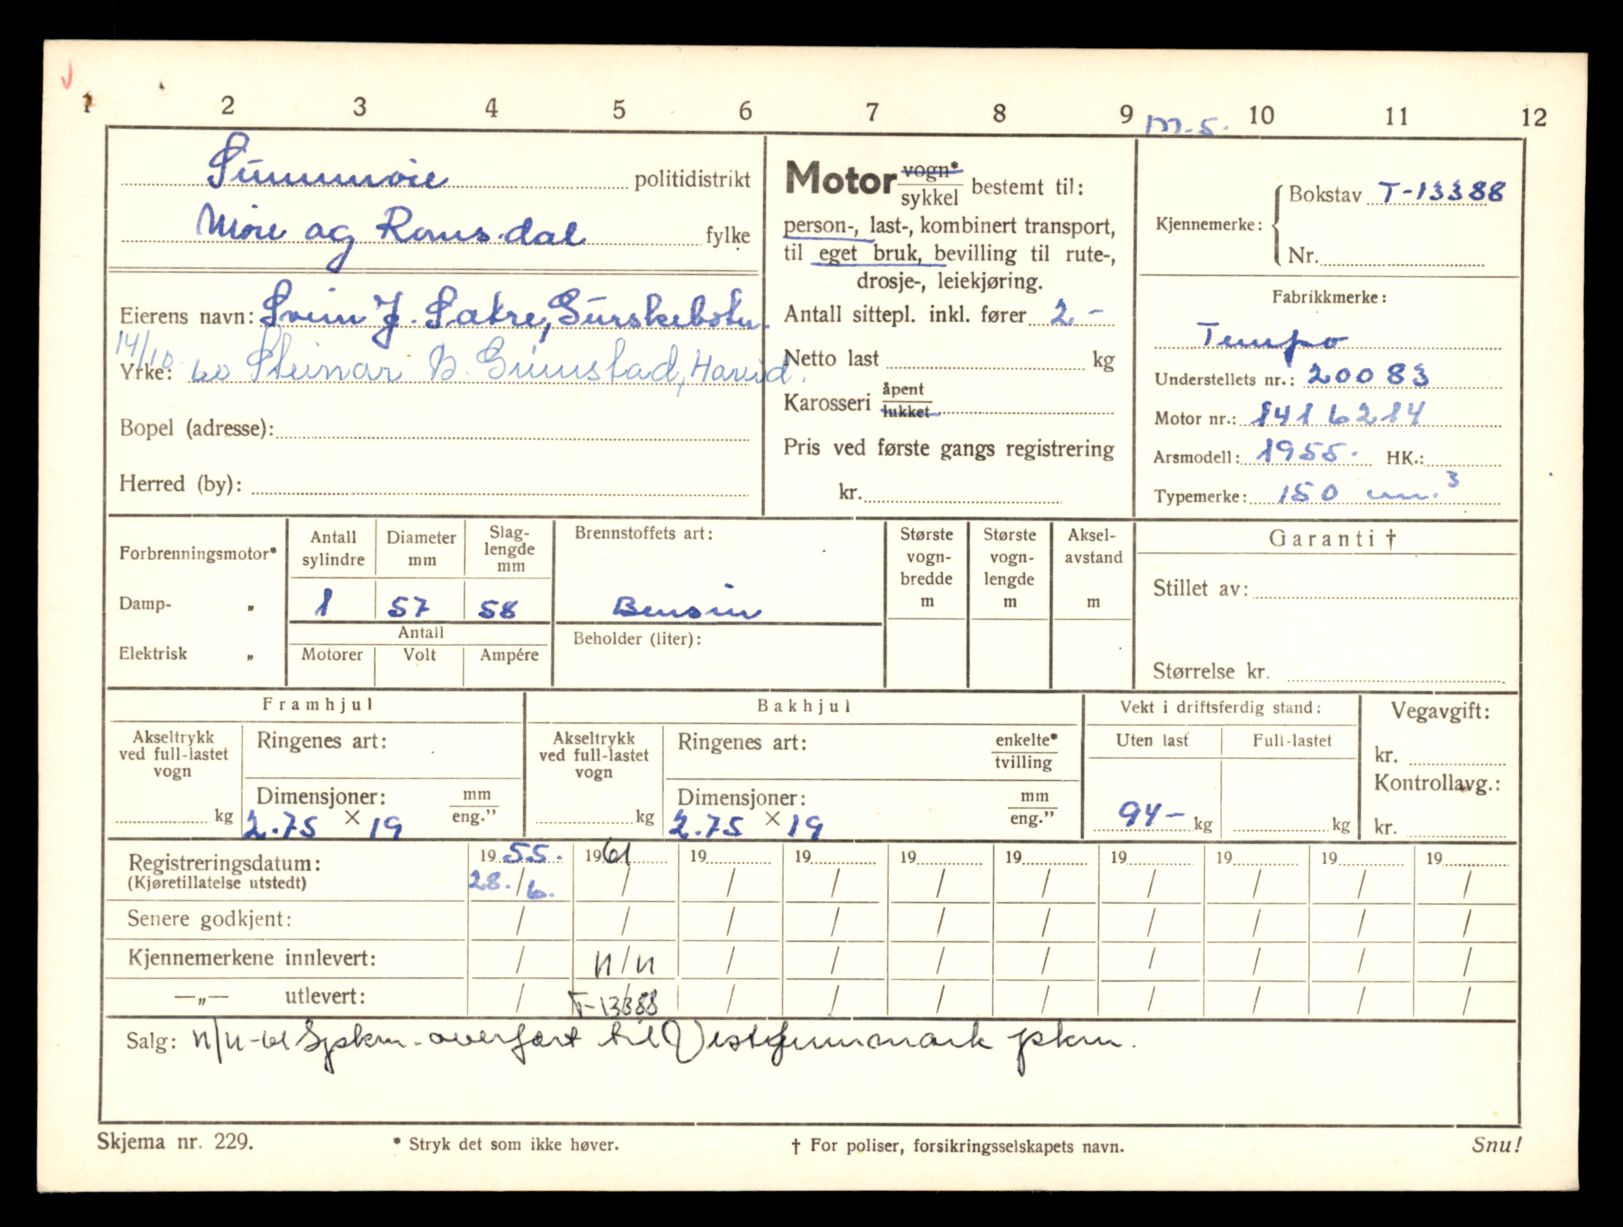 1 2 3 4 5 6 7 8 9 10 11 12
m-s.
Sunnmøre politidistrikt
Møre og Romsdal fylke
Eierens navn: Svein J. Sætre, Gurskebotn.
14/10
Yrke: 60 Steinar B. Grimstad, Hareid.
Bopel (adresse):
Herred (by):
Motor vogn* sykkel bestemt til:
person-, last-, kombinert transport,
til eget bruk, bevilling til rute-,
drosje-, leiekjøring.
Antall sittepl. inkl. fører 2 -
Netto last kg
Karosseri åpent lukket
Pris ved første gangs registrering
kr.
Kjennemerke: Bokstav T-13388
Nr.
Fabrikkmerke:
Tempo
Understellets nr.: 20083
Motor nr.: 1416214
Årsmodell: 1955. HK.:
Typemerke: 150 cm.³
Forbrenningsmotor*
Damp- „
Elektrisk „
Antall sylindre
1
Diameter mm
57
Slaglengde mm
58
Antall
Motorer Volt Ampére
Brennstoffets art:
Bensin
Beholder (liter):
Største vognbredde m
Største vognlengde m
Akselavstand m
Garanti †
Stillet av:
Størrelse kr.
Framhjul
Akseltrykk ved full-lastet vogn
kg
Ringenes art:
Dimensjoner: mm eng.”
2.75 × 19
Bakhjul
Akseltrykk ved full-lastet vogn
kg
Ringenes art: enkelte* tvilling
Dimensjoner: mm eng.”
2.75 × 19
Vekt i driftsferdig stand:
Uten last Full-lastet
94- kg kg
Vegavgift:
kr.
Kontrollavg.:
kr.
Registreringsdatum: 19 55. 19 61 19 19 19 19 19 19 19 19
(Kjøretillatelse utstedt) 28./6. / / / / / / / / /
Senere godkjent: / / / / / / / / / /
Kjennemerkene innlevert: / 11/11 / / / / / / / /
—„— utlevert: / T-13388 / / / / / / / /
Salg: 11/11-61 Gjpkm. overført til Vestfinnmark pkm.
Skjema nr. 229. * Stryk det som ikke høver. † For poliser, forsikringsselskapets navn. Snu!